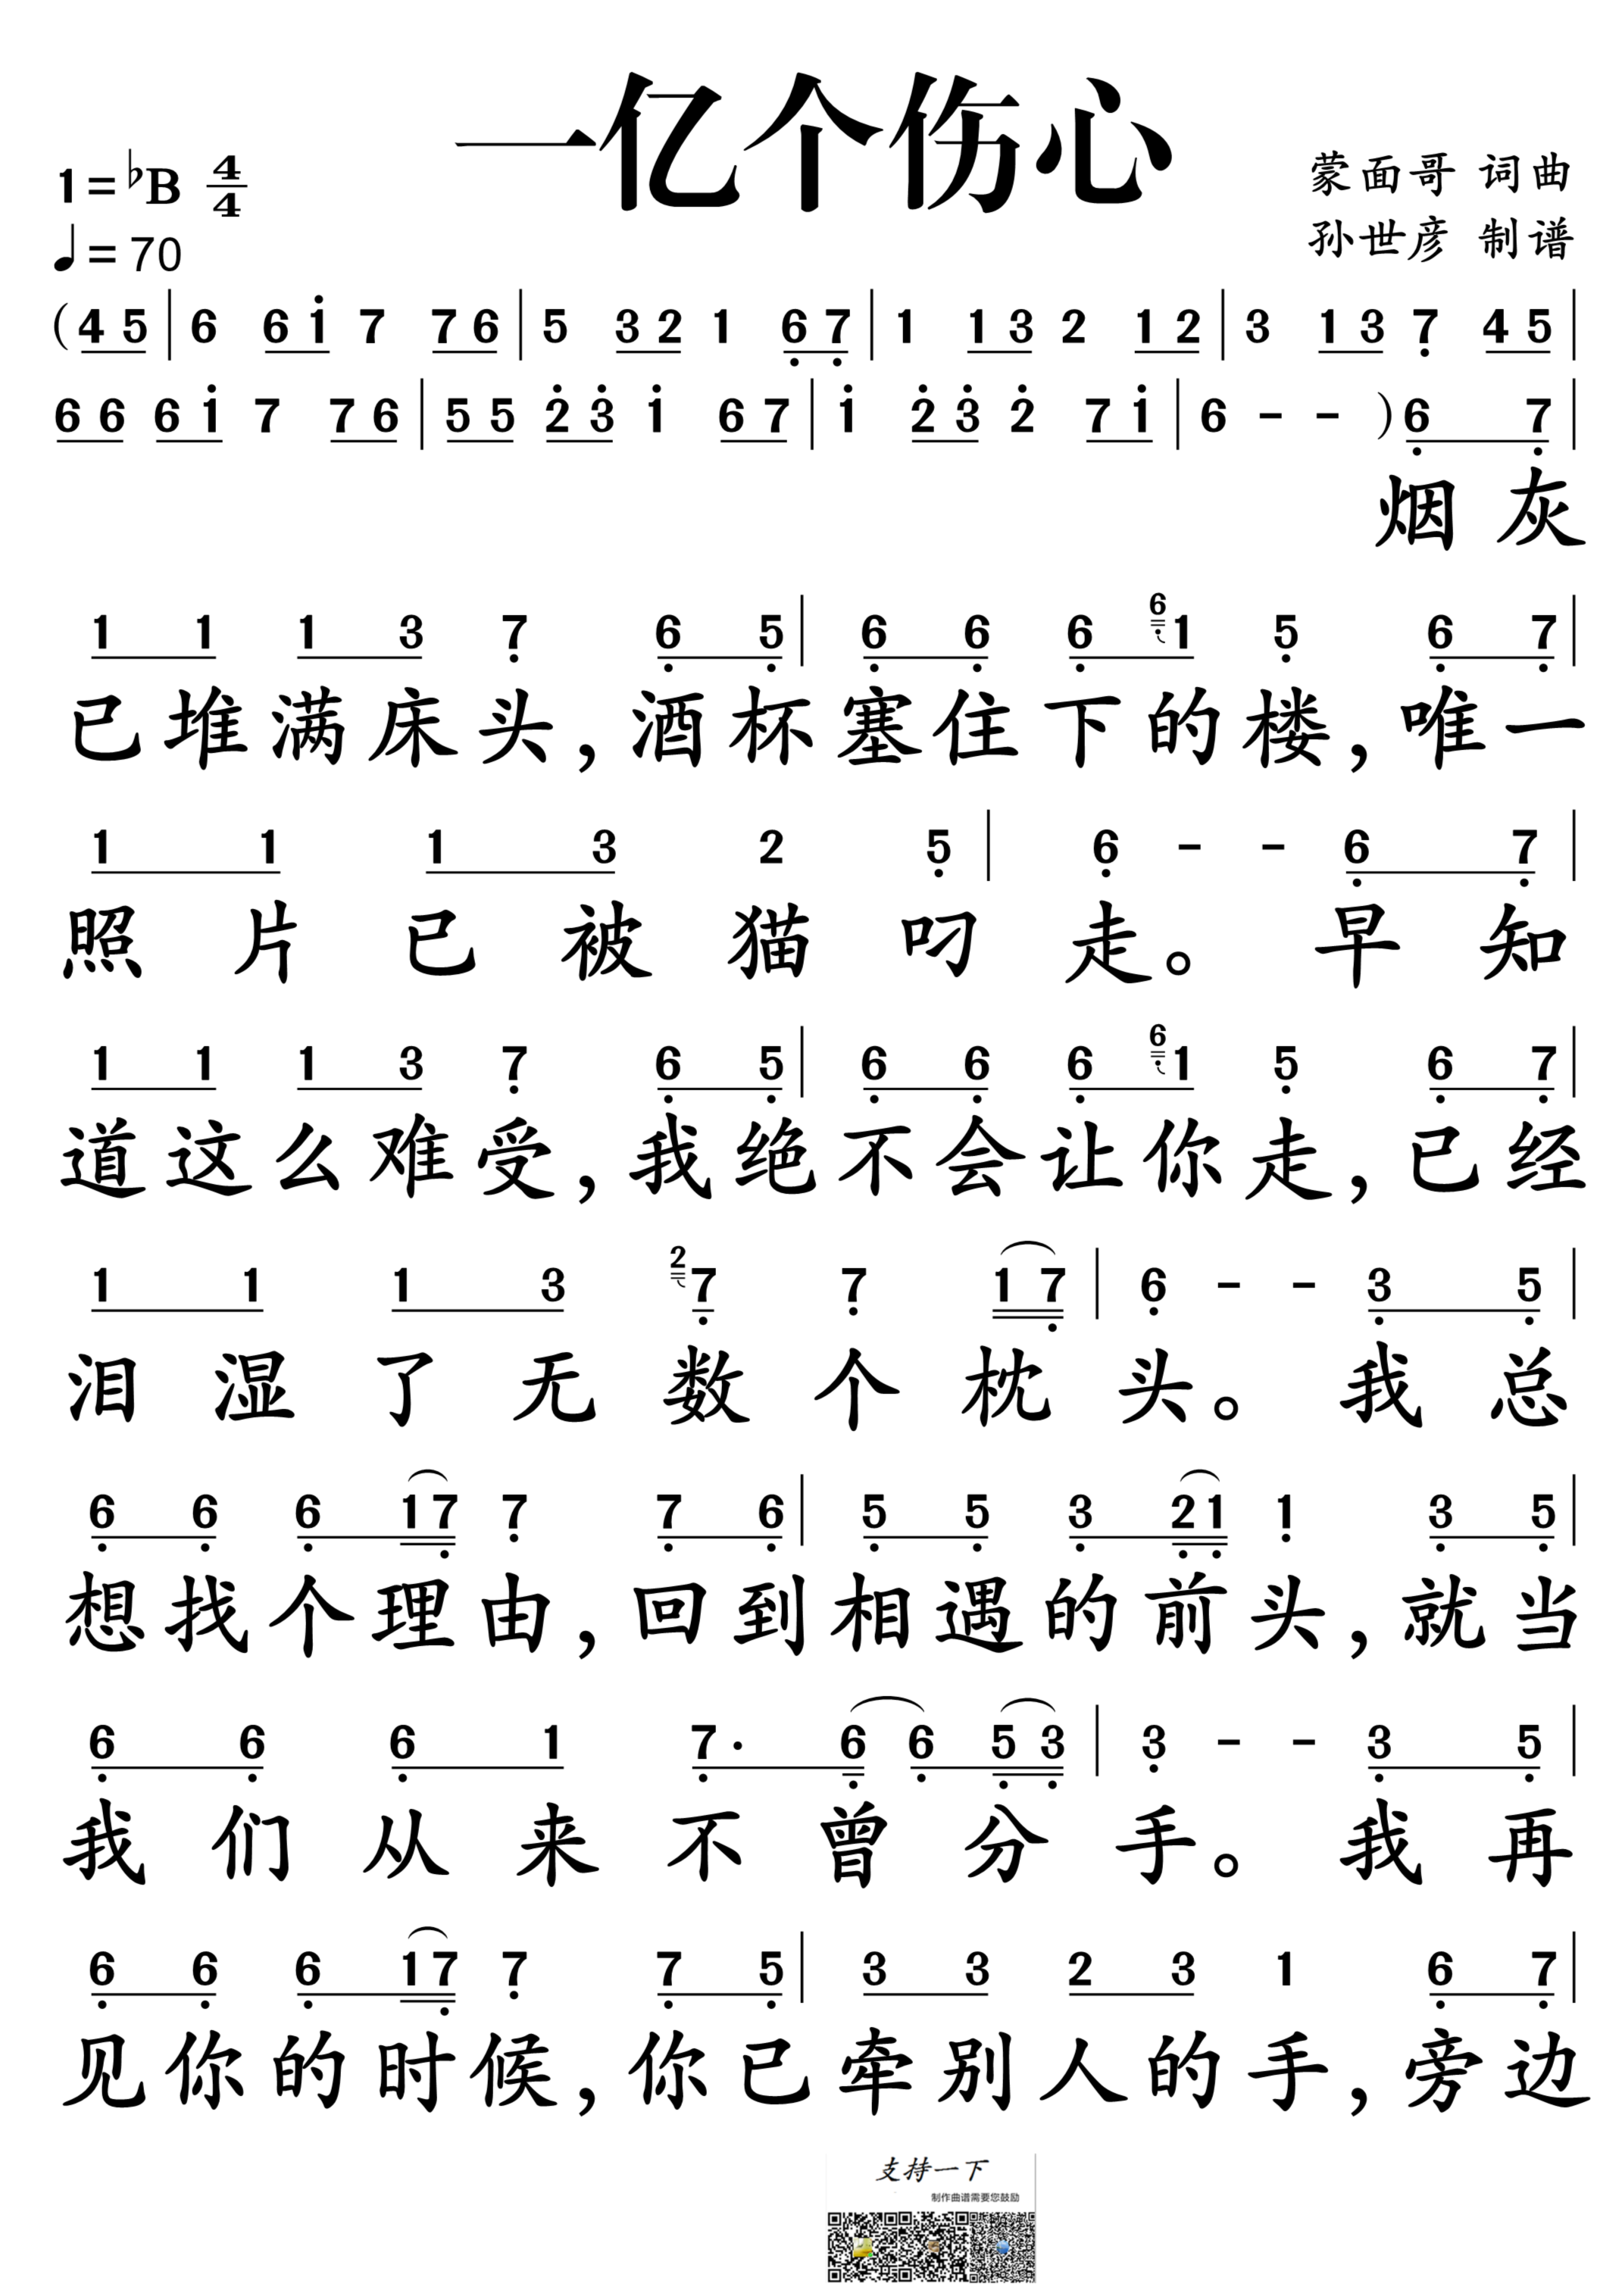 一亿个伤心
1=♭B 4/4
♩=70
蒙面哥 词曲
孙世彦 制谱
(4 5 | 6 6 1̇ 7 7 6 | 5 3 2 1 6̣ 7̣ | 1 1 3 2 1 2 | 3 1 3 7̣ 4 5 |
6 6 6 1̇ 7 7 6 | 5 5 2̇ 3̇ 1̇ 6 7 | 1̇ 2̇ 3̇ 2̇ 7 1̇ | 6 - - ) 6̣ 7̣ |
烟灰
1 1 1 3 7̣ 6̣ 5̣ | 6̣ 6̣ 6̣ 6̣ 1 5̣ 6̣ 7̣ |
已堆满床头,酒杯塞住下的楼,唯一
1 1 1 3 2 5̣ | 6̣ - - 6̣ 7̣ |
照片已被猫叼走。早知
1 1 1 3 7̣ 6̣ 5̣ | 6̣ 6̣ 6̣ 6̣ 1 5̣ 6̣ 7̣ |
道这么难受,我绝不会让你走,已经
1 1 1 3 2 7̣ 7̣ 1 7̣ | 6̣ - - 3̣ 5̣ |
泪湿了无数个枕头。我总
6̣ 6̣ 6̣ 1 7̣ 7̣ 7̣ 6̣ | 5̣ 5̣ 3̣ 2̣ 1̣ 1̣ 3̣ 5̣ |
想找个理由,回到相遇的前头,就当
6̣ 6̣ 6̣ 1 7̣· 6̣ 6̣ 5̣ 3̣ | 3̣ - - 3̣ 5̣ |
我们从来不曾分手。我再
6̣ 6̣ 6̣ 1 7̣ 7̣ 7̣ 5̣ | 3 3 2 3 1 6̣ 7̣ |
见你的时候,你已牵别人的手,旁边
支持一下
制作曲谱需要您鼓励